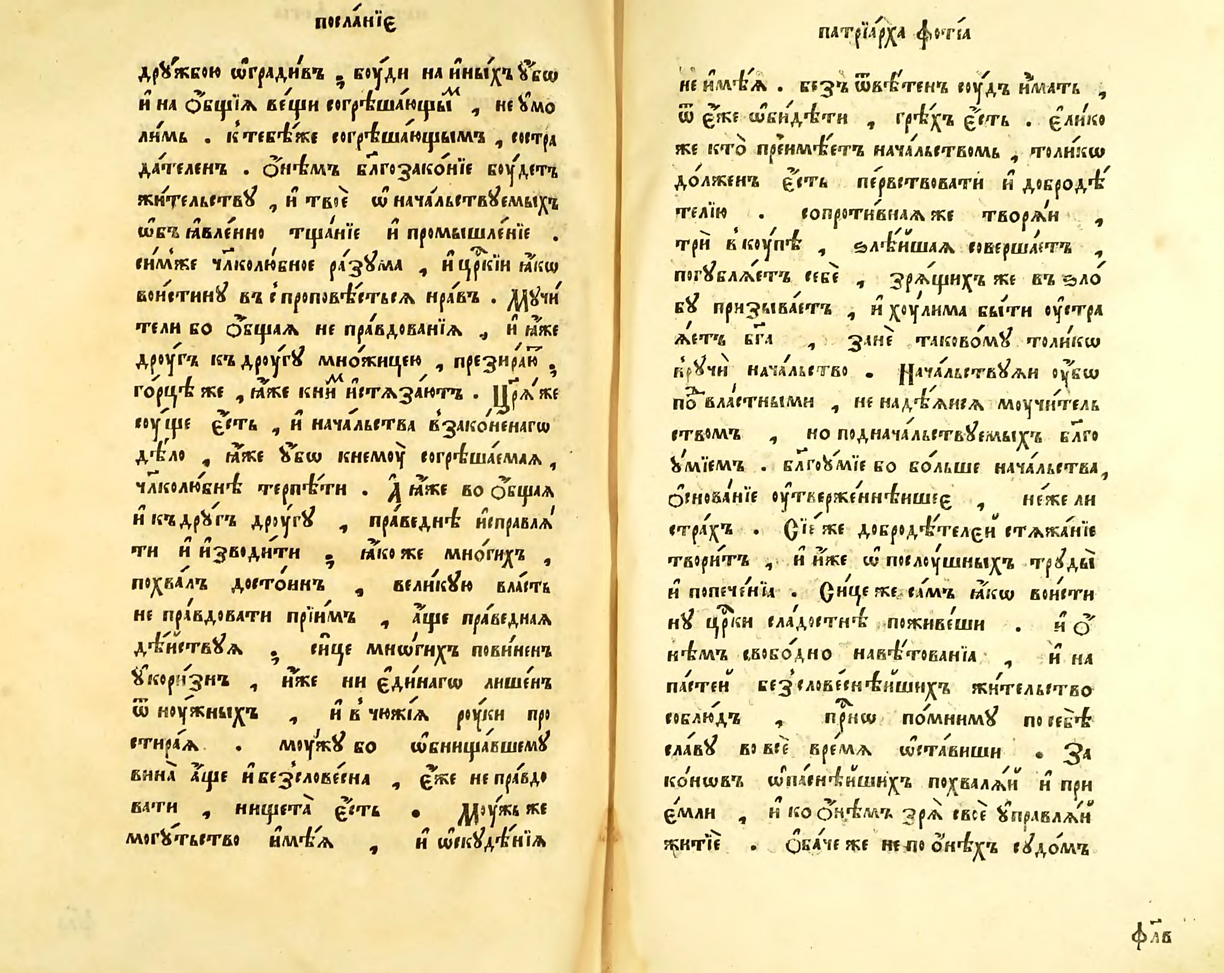 посла́нїє
дрꙋ́жбою ѡ҆гради́въ , боу́ди на и҆ны́хъ ᲂу҆́бѡ
и҆ на ѻ҆́бщїѧ ве́щи согрѣша́ющыⷨ , не ᲂу҆мо
ли́мь . к̾тебѣ́же согрѣша́ющымъ , состра
да́телен . ѻ҆не́мъ бл҃гозако́нїе боу́детъ
жи́тельствꙋ , и҆ твоѐ ѡ҆ нача́льствꙋемыхъ
ѡ҆б̾ꙗ҆вле́нно тща́нїе и҆ промышле́нїе .
си́мже чл҃колюбное ра́зꙋма , и҆ црⷭ҇кїи ꙗ҆́кѡ
вои́стинꙋ въ с̾проповѣ́стьсѧ нра́въ . Мꙋчи́
тели бо ѻ҆́бщаѧ не пра́вдованїѧ , и҆ ꙗ҆́же
дроу́гъ къ дроу́гꙋ мно́жицею , презира́юⷮ ,
го́рцѣ же , ꙗ҆́же кни́ⷨ и҆стѧза́ютъ . Цр҃ѧ́ же
соу́ще є҆́сть , и҆ нача́льства в̾зако́ненагѡ
дѣ́ло , ꙗ҆́же ᲂу҆́бѡ кнемоу̀ согрѣша́емаѧ ,
чл҃колю́бнѣ терпѣ́ти . А҆ ꙗ҆́же во ѻ҆́бщаѧ
и҆ къ дрꙋгъ дроу́гꙋ , пра́веднѣ и҆справлѧ́
ти и҆ и҆зводи́ти ; ꙗ҆́ко же мно́гихъ ,
похва́лъ досто́инъ , вели́кꙋю вла́сть
не пра́вдовати прїи́мъ , а҆́ще пра́веднаѧ
дѣ́йствꙋѧ ; си́це мнѡ́гихъ пови́ненъ
ᲂу҆кори́знъ , и҆́же ни є҆ди́нагѡ лише́нъ
ѿ ноу́жныхъ , и҆ в̾ чюжі́ѧ роу́ки про
стира́ѧ . моу́жꙋ бо ѡ҆бнища́вшемꙋ
вина̀ а҆́ще и҆ без̾слове́сна , є҆́же не пра́вдо
вати , нищета̀ є҆́сть . Моу́жь же
могу́тьство и҆мѣ́ѧ , и҆ ѡ҆скꙋдѣ́нїѧ
патрїа́рха фѡ́тїа
не и҆мѣ́ѧ . без̾ ѿвѣ́тен соу́дъ и҆́мать ,
ѿ є҆́же ѡ҆би́дѣти , грѣ́хъ є҆́сть . є҆ли́ко
же кто̀ преимѣ́етъ нача́льствомь , толи́кѡ
до́лженъ є҆́сть пе́рвствовати и҆ добродѣ́
телїю . сопроти́внаѧ же творѧ́и ,
трѝ в̾коу́пѣ , ѕлѣ́йшаѧ соверша́етъ ,
погꙋблѧ́етъ себѐ , зрѧ́щихъ же въ ѕло́
бꙋ призыва́етъ , и҆ хоу́лима бы́ти оу҆стра
ѧ́етъ бг҃а , занѐ таково́мꙋ толи́кѡ
врꙋчѝ нача́льство . Нача́льствꙋѧи оу҆́бѡ
поⷣ вла́стными , не надѣ́ѧисѧ моучи́тель
ством̾ , но подначáльствꙋемыхъ бл҃го
ᲂу҆́мїемъ . бл҃гоꙋ́мїе бо бо́льше нача́льства ,
ѻ҆снова́нїе оу҆твержéннѣишеє , не́же ли
стра́х̾ . Сїе́ же добродѣ́телєй стѧжа́нїе
твори́тъ , и҆ и҆́же ѡ҆ послоу́шныхъ трꙋды̀
и҆ попече́нїѧ . Си́це же са́мъ ꙗ҆́кѡ вои́сти
нꙋ црⷭ҇ки сла́достнѣ поживе́ши . и҆ ѻ҆
не́мъ свобо́дно навѣ́тованїа , и҆ на
па́стей без̾слове́снѣйшихъ жи́тельство
соблю́дъ , прⷭ҇нѡ по́мнимꙋ по себѣ̀
сла́вꙋ во всѐ вре́мѧ ѡ҆ста́виши . За
ко́нѡвъ ѡ҆па́снѣйшихъ похвалѧ́й и҆ при
є́мли , и҆ ко ѻ҆нѣ́мъ зрѧ̀ своѐ ᲂу҆правлѧ́й
житїѐ . Ѻ҆ба́че же не по ѻ҆нѣ́хъ сꙋдо́мъ
фл҃в